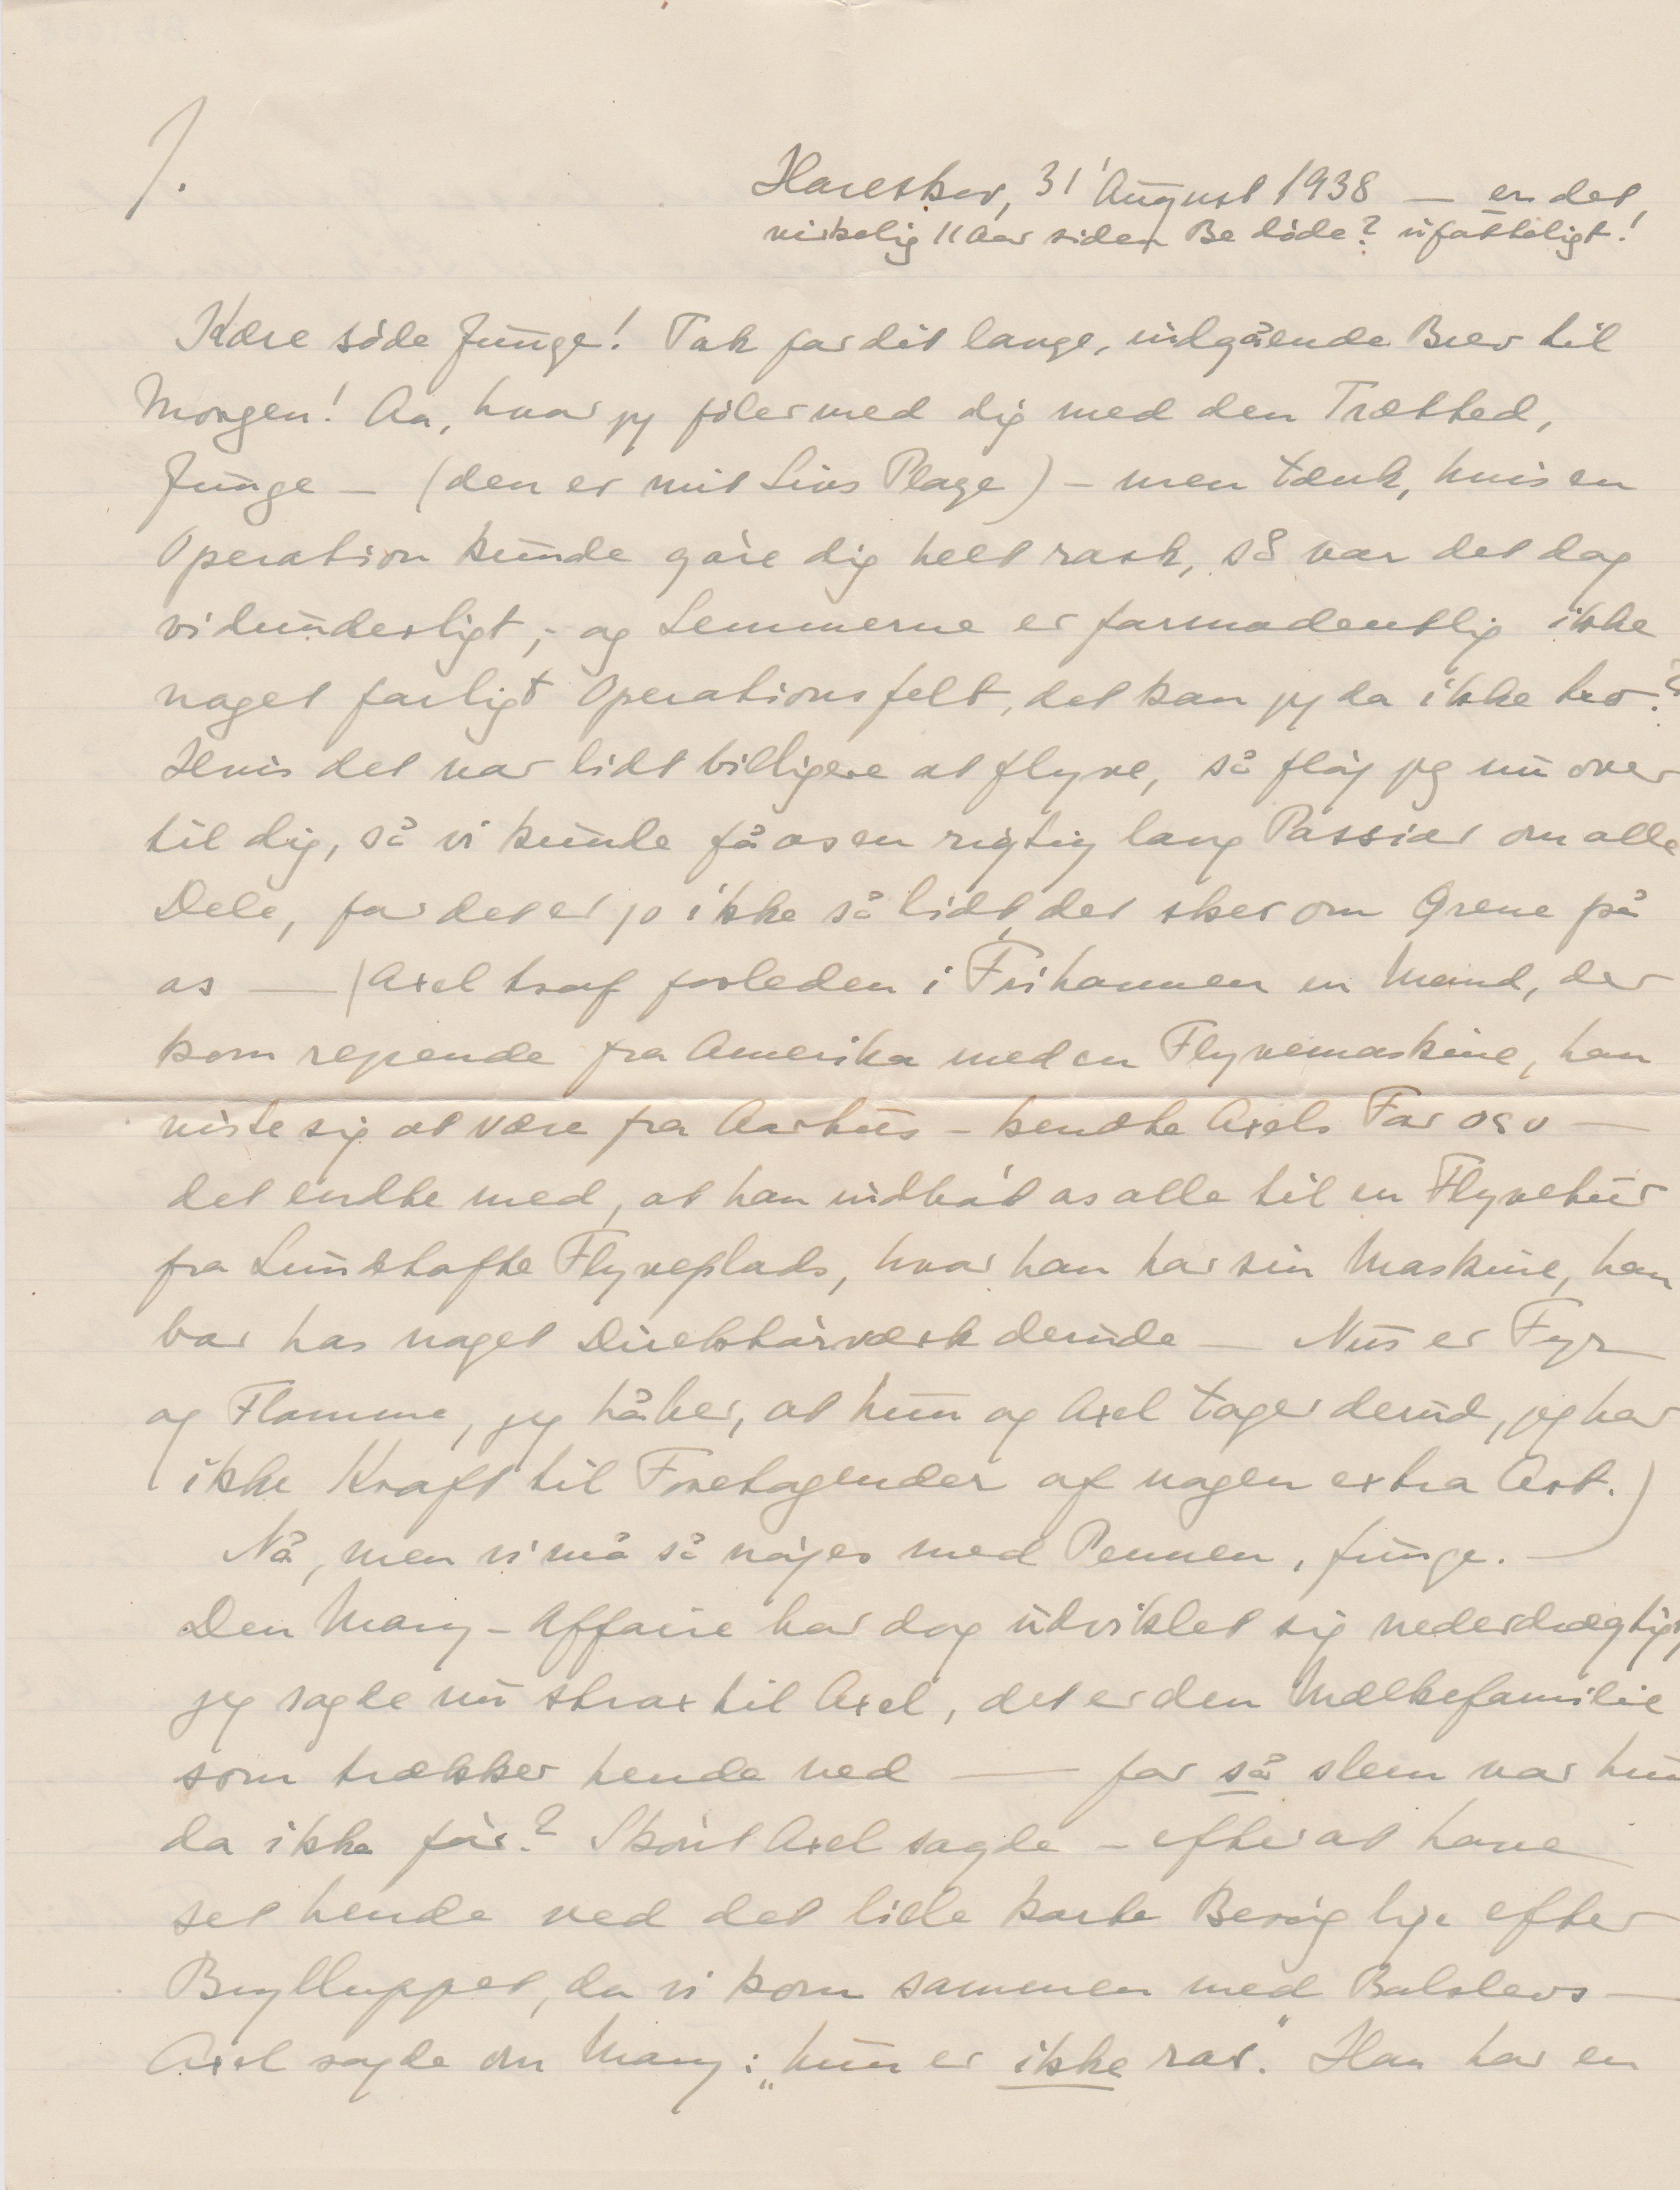 1.
Hareskov, 31' August 1938 — er det
virkelig 11 Aar siden Be døde? ufatteligt!
Kære søde Junge! Tak for dit lange, indgående Brev til
Morgen! Aa, hvor jeg føler med dig med den Træthed,
Junge — (den er mit Livs Plage) — men tænk, hvis en
Operation kunde gøre dig helt rask, så var det dog
vidunderligt, - og Lemmerne er formodentlig ikke
noget farligt Operationsfelt, det kan jeg da ikke tro?
Hvis det var lidt billigere at flyve, så fløj jeg nu over
til dig, så vi kunde få os en rigtig lang Passiar om alle
Dele, for det er jo ikke så lidt, der sker om Ørene på
os — (Axel traf forleden i Frihavnen en Mand, der
kom rejsende fra Amerika med en Flyvemaskine, han
viste sig at være fra Aarhus - kendte Axels Far osv —
det endte med, at han indbød os alle til en Flyvetur
fra Lundtofte Flyveplads, hvor han har sin Maskine, han
bor hos noget Direktørværk derude — Nus er Fyr
og Flamme, jeg håber, at hun og Axel tager derud, jeg har
ikke Kraft til Foretagender af nogen extra Art.)
Nå, men vi må så nøjes med Pennen, Junge. —
Den Mary - Affaire har dog udviklet sig nederdrægtigt
jeg sagde nu strax til Axel, det er den Mælkefamilie
som trækker hende ned — for så slem var hun
da ikke før? Skønt Axel sagde - efter at have
set hende ved det lille korte Besøg lige efter
Brylluppet, da vi kom sammen med Balslevs —
Axel sagde om Mary: „hun er ikke rar." Han har en